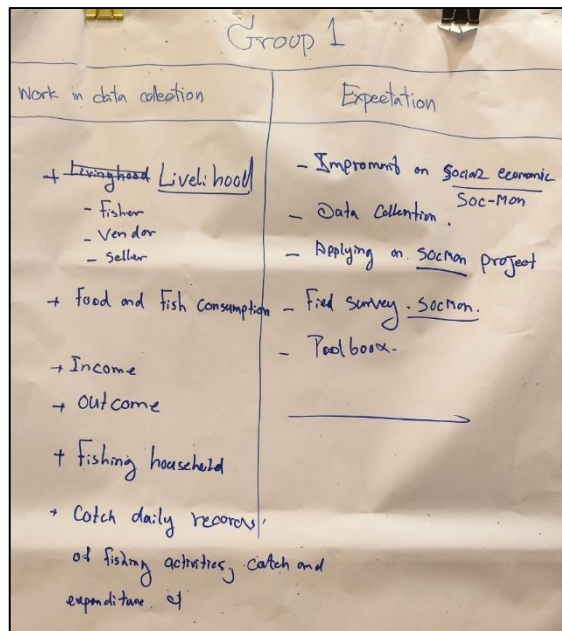 Group 1
Work in data collection
+ Livinghood Livelihood
- Fisher
- Vendor
- Seller
+ Food and Fish Consumption
+ Income
+ Outcome
+ Fishing household
+ Catch daily records
of fishing activities, catch and
expenditure
Expectation
- Impromnt on Social economic
Soc-Mon
- Data Collention.
- Applying on SocMon project
- Fied survey. SocMon.
- Toolboox.